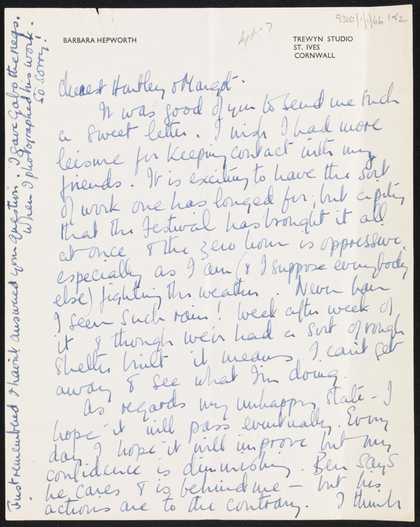 BARBARA HEPWORTH
TREWYN STUDIO
ST. IVES
CORNWALL
Dearest Hartley & Margot.
It was good of you to send me such
a sweet letter. I wish I had more
leisure for keeping contact with my
friends. It is exciting to have the sort
of work one has longed for, but a pity
that the Festival has brought it all
at once & the zero hour is oppressive
especially as I am (& I suppose everybody
else) fighting the weather. Never have
I seen such rain! Week after week of
it & though we've had a sort of rough
shelter built it means I can't get
away & see what I'm doing.
As regards my unhappy state - I
hope it will pass eventually. Every
day I hope it will improve but my
confidence is diminishing. Ben says
he cares & is behind me - but his
actions are to the contrary. I think
Just remembered I haven't answered your question. I gave Gabo the negs.
when I photographed his work.
so sorry!